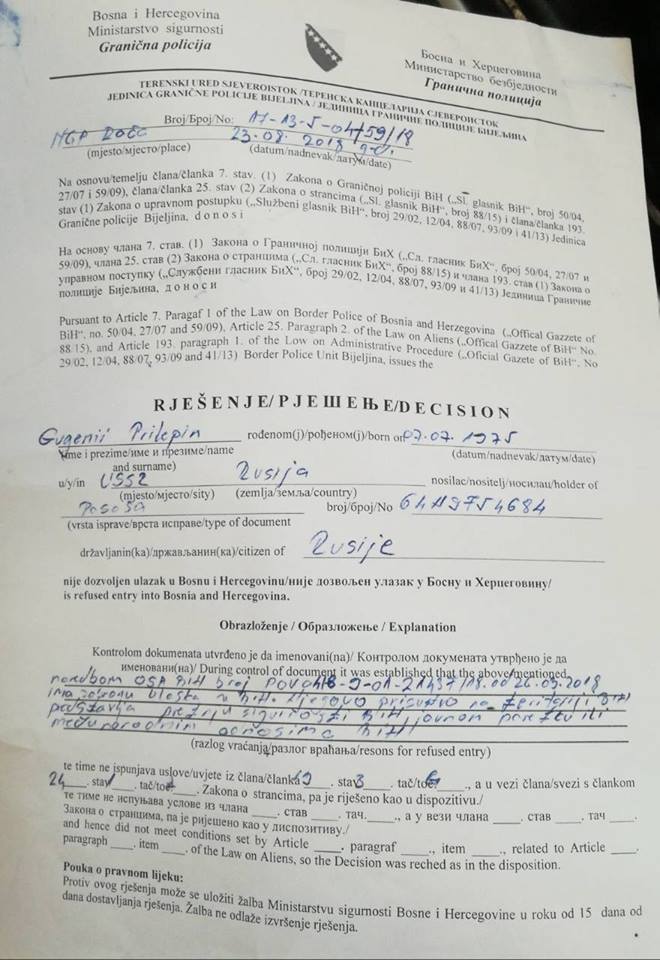 Bosna i Hercegovina
Ministarstvo sigurnosti
Granična policija
Босна и Херцеговина
Министарство безбједности
Гранична полиција
TERENSKI URED SJEVEROISTOK /ТЕРЕНСКА КАНЦЕЛАРИЈА СЈЕВЕРОИСТОК
JEDINICA GRANIČNE POLICIJE BIJELJINA / ЈЕДИНИЦА ГРАНИЧНЕ ПОЛИЦИЈЕ БИЈЕЉИНА
Broj/Број/No: 17-13-5-04/59/18
23.08.2018
(mjesto/мјесто/place) (datum/nadnevak/датум/date)
Na osnovu/temelju člana/članka 7. stav. (1) Zakona o Graničnoj policiji BiH („Sl. glasnik BiH", broj 50/04,
27/07 i 59/09), člana/članka 25. stav (2) Zakona o strancima („Sl. glasnik BiH", broj 88/15) i člana/članka 193.
stav (1) Zakona o upravnom postupku („Službeni glasnik BiH", broj 29/02, 12/04, 88/07, 93/09 i 41/13) Jedinica
Granične policije Bijeljina, d o n o s i
На основу члана 7. став. (1) Закона о Граничној полицији БиХ („Сл. гласник БиХ", број 50/04, 27/07 и
59/09), члана 25. став (2) Закона о странцима („Сл. гласник БиХ", број 88/15) и члана 193. став (1) Закона о
управном поступку („Службени гласник БиХ", број 29/02, 12/04, 88/07, 93/09 и 41/13) Јединица Граничне
полиције Бијељина, д о н о с и
Pursuant to Article 7. Paragaf 1 of the Law on Border Police of Bosnia and Herzegovina („Offical Gazzete of
BiH", no. 50/04, 27/07 and 59/09), Article 25. Paragraph 2. of the Law on Aliens („Offical Gazzete of BiH" No.
88/15), and Article 193. paragraph 1. of the Low on Administrative Procedure („Oficial Gazete of BiH", No
29/02, 12/04, 88/07, 93/09 and 41/13) Border Police Unit Bijeljina, issues the
RJEŠENJE/РЈЕШЕЊЕ/DECISION
Evgenii Prilepin rođenom(j)/рођеном(ј)/born on 07.07.1975
(ime i prezime/име и презиме/name (datum/nadnevak/датум/date)
and surname)
u/у/in USSR Rusija nosilac/nositelj/носилац/holder of
(mjesto/мјесто/sity) (zemlja/земља/country)
Pasoša broj/број/No
(vrsta isprave/врста исправе/type of document
državljanin(ka)/држављанин(ка)/citizen of Rusije
nije dozvoljen ulazak u Bosnu i Hercegovinu/није дозвољен улазак у Босну и Херцеговину/
is refused entry into Bosnia and Herzegovina.
Obrazloženje / Образложење / Explanation
Kontrolom dokumenata utvrđeno je da imenovani(na)/ Контролом докумената утврђено је да
именовани(на)/ During control of document it was established that the above mentioned
naredbom OSA BiH broj
ima zabranu ulaska u BiH. Njegovo prisustvo na teritoriji BiH
predstavlja prijetnju sigurnosti BiH, javnom poretku ili
međunarodnim odnosima BiH
(razlog vraćanja/разлог враћања/resons for refused entry)
te time ne ispunjava uslove/uvjete iz člana/članka 19 stav 3 tač/toč, a u vezi člana/svezi s člankom
24. stav tač/toč Zakona o strancima, pa je riješeno kao u dispozitivu./
те тиме не испуњава услове из члана ____. став ____. тач.____., а у вези члана ____. став ____. тач ____.
Закона о странцима, па је ријешено као у диспозитиву./
and hence did not meet conditions set by Article ____. paragraf ____., item ____., related to Article ____.
paragraph ____. item ____. of the Law on Aliens, so the Decision was reched as in the disposition.
Pouka o pravnom lijeku:
Protiv ovog rješenja može se uložiti žalba Ministarstvu sigurnosti Bosne i Hercegovine u roku od 15 dana od
dana dostavljanja rješenja. Žalba ne odlaže izvršenje rješenja.